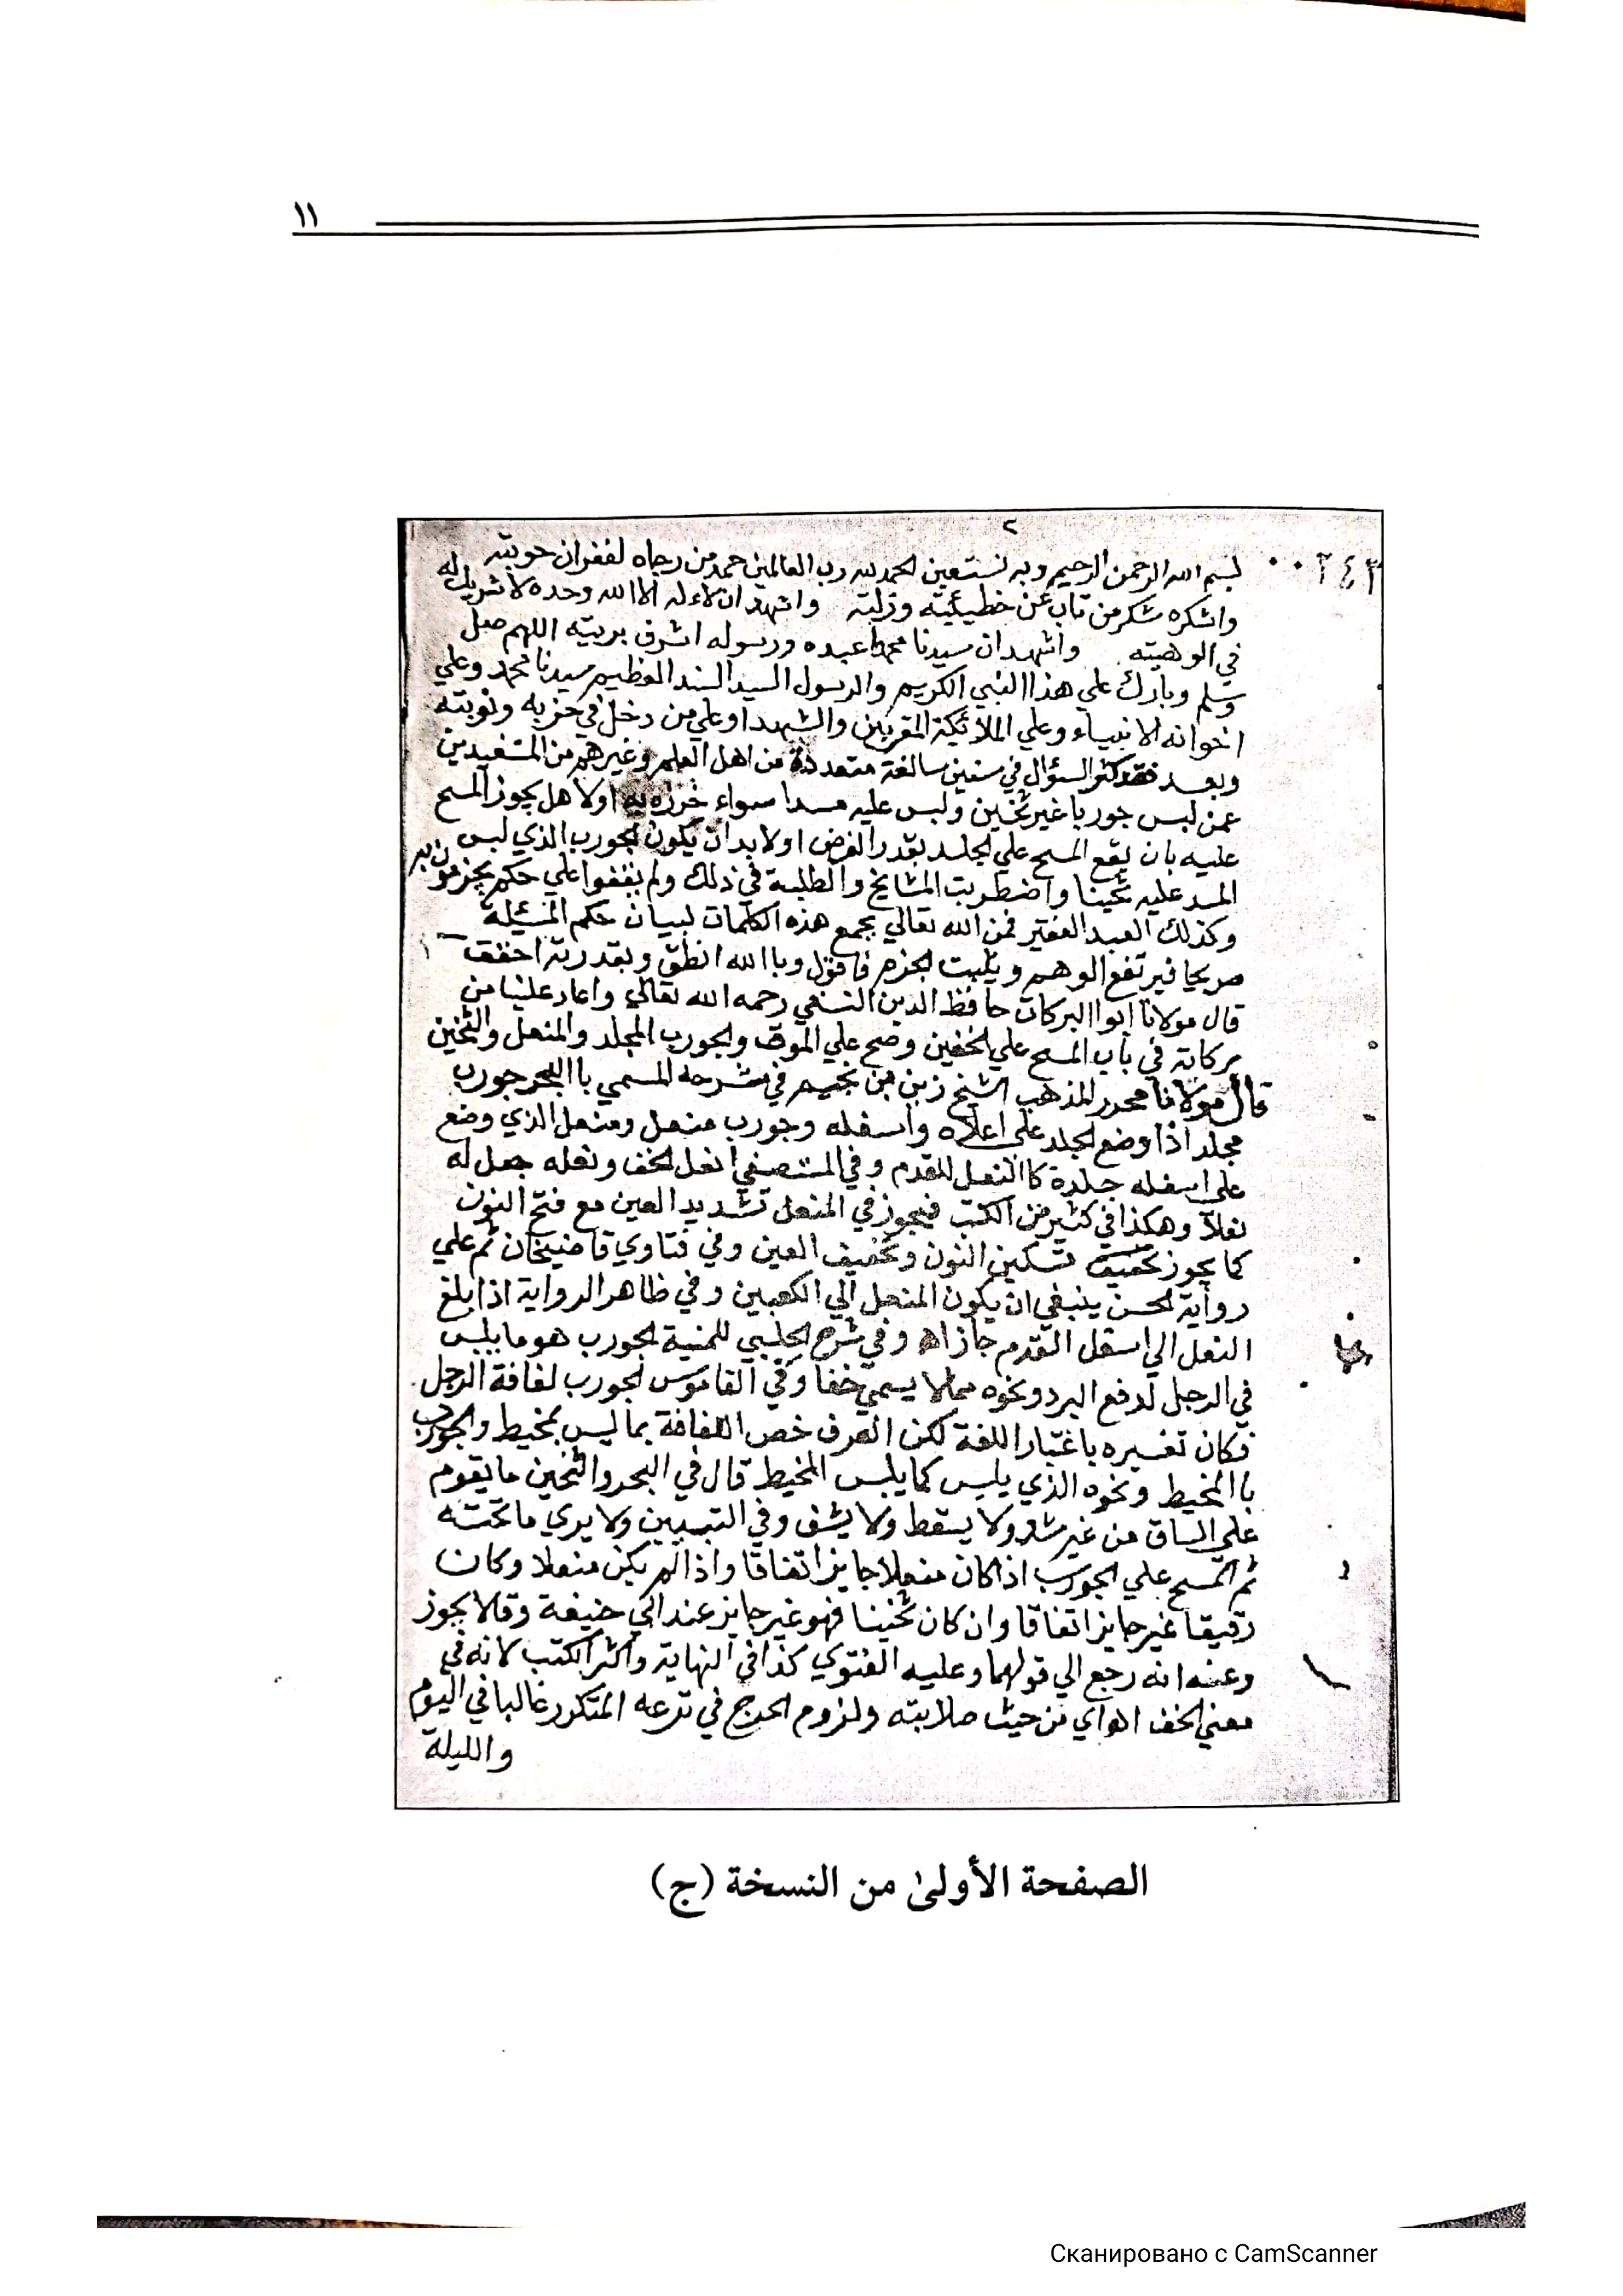 ١١
٢
٠٠٢٤٣
بسم الله الرحمن الرحيم وبه نستعين الحمد لله رب العالمين حمد من رجاه لغفران حوبته
واشكره شكر من تاب عن خطيئيته وزلته واشهد ان لا اله الا الله وحده لا شريك له
في الوهيته واشهد ان سيدنا محمدا عبده ورسوله اشرف بريته اللهم صل
وسلم وبارك علي هذا النبي الكريم والرسول السيد السند العظيم سيدنا محمد وعلي
اخوانه الانبياء وعلي الملائكة المقربين والشهدا وعلي من دخل في حزبه ونوبته
وبعد فقد كثر السؤال في سنين سالفة متعددة من اهل العلم وغيرهم من المستفيدين
عمن لبس جوربا غير ثخين ولبس عليه مسدا سواء خرزه به اولا هل يجوز المسح
عليه بان يقع المسح علي الجلد بقدر الفرض اولا بد ان يكون الجورب الذي لبس
المسد عليه ثخينا واضطربت المشايخ والطلبة في ذلك ولم يقفوا علي حكم يجزمون به
وكذلك العبد الفقير فمن الله تعالي بجمع هذه الكلمات لبيان حكم المسئلة
صريحا فيرتفع الوهم ويثبت الجزم فاقول وبا الله انطق وبقدرته احقق
قال مولانا ابوا البركات حافظ الدين النسفي رحمه الله تعالي واعاد علينا من
بركاته في باب المسح علي الخفين وصح علي الموق والجورب المجلد والمنعل والثخين
قال مولانا محرر المذهب الشيخ زين بن نجيم في شرحه المسمي با البحر جورب
مجلد اذا وضع الجلد علي اعلاه واسفله وجورب منعل ومنعل الذي وضع
علي اسفله جلدة كا النعل للقدم وفي المستصفي انعل الخف ونعله جعل له
نعلا وهكذا في كثير من الكتب فيجوز في المنعل تشديد العين مع فتح النون
كما يجوز تسكين النون وتخفيف العين وفي فتاوي قاضيخان ثم علي
رواية الحسن ينبغي ان يكون المنعل الي الكعبين وفي ظاهر الرواية اذا بلغ
النعل الي اسفل القدم جاز اه وفي شرح الحلبي للمنية الجورب هو ما يلبس
في الرجل لدفع البرد ونحوه مما لا يسمي خفا وفي القاموس الجورب لفافة الرجل
فكان تفسيره باعتبار اللغة لكن العرف خص اللفافة بما ليس بمخيط والجورب
با المخيط ونحوه الذي يلبس كما يلبس المخيط قال في البحر والثخين ما يقوم
علي الساق من غير شد ولا يسقط ولا يشف وفي التبيين ولا يري ما تحته
ثم المسح علي الجورب اذا كان منعلا جايز اتفاقا واذا لم يكن منعلا وكان
رقيقا غير جايز اتفاقا وان كان ثخينا فهو غير جايز عند ابي حنيفة وقالا يجوز
وعنه انه رجع الي قولهما وعليه الفتوي كذا في النهاية واكثر الكتب لانه في
معني الخف اه اي من حيث صلابته ولزوم الحرج في نزعه المتكرر غالبا في اليوم
والليلة
الصفحة الأولىٰ من النسخة (ج)
Сканировано с CamScanner